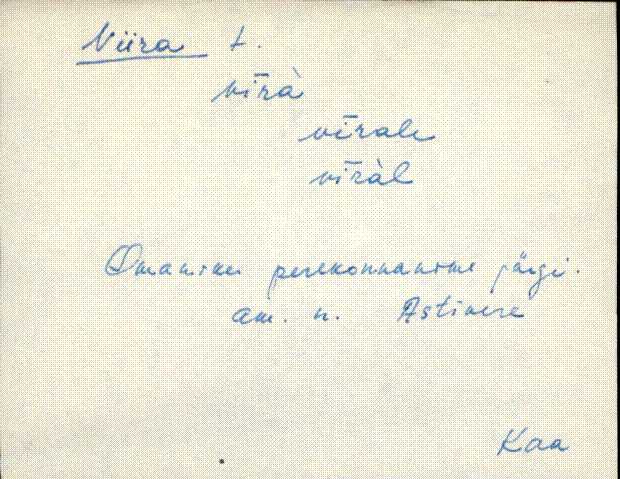 Viira t.
vīrà
vīrale
vīràl
Omaniku perekonnanime järgi.
am. n. Astivere
Kaa